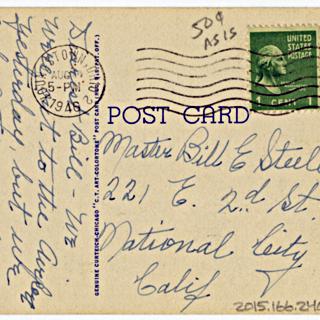 Dear Bill - We
Went out to the Curley
Yesterday but we
AUG
5-PM
1946
50¢
AS IS
UNITED
STATES
POSTAGE
1 CENT 1
POST CARD
GENUINE CURTEICH-CHICAGO "C.T. ART-COLORTONE" POST CARD (REG. U.S. PAT. OFF.)
Master Bill E Steele
221 E. 2d St.
National City
Calif
2015.166.240